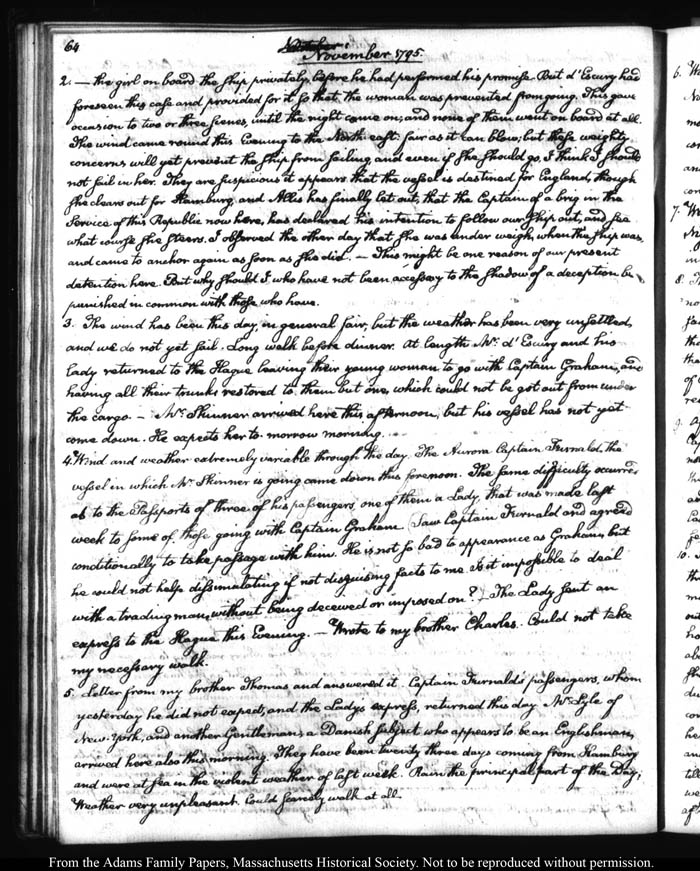 64
November 1795.
2. — the girl on board the ship privately, before he had performed his promise. But d'Escury had
foreseen this case and provided for it so that, the woman was prevented from going. This gave
occasion to two or three scenes, until the night come on; and none of them went on board at all.
The wind came round this Evening to the North east: fair as it can blow; but these weighty
concerns will yet prevent the ship from sailing, and even if she should go, I think I should
not sail in her. They are suspicious it appears that the vessel is destined for England, though
she clears out for Hamburg, and Allis has finally let out, that the Captain of a brig in the
Service of this Republic now here, has declared his intention to follow our ship out, and see
what course she steers. I observed the other day that she was under weigh, when the ship was,
and came to anchor again as soon as she did. — This might be one reason of our present
detention here. But why should I, who have not been accessory to the shadow of a deception be
punished in common with those who have.
3. The wind has been this day, in general fair, but the weather has been very unsettled,
and we do not yet sail. Long walk before dinner. At length Mr. d'Escury and his
lady returned to the Hague leaving their young woman to go with Captain Graham, and
having all their trunks restored to them but one, which could not be got out from under
the cargo. — Mr. Skinner arrived here this afternoon, but his vessel has not yet
come down. He expects her to-morrow morning.
4. Wind and weather extremely variable through the day. The Aurora Captain Furnald, the
vessel in which Mr. Skinner is going came down this forenoon. The same difficulty occurred
as to the Passports of three of his passengers, one of them a Lady, that was made last
week to some of those going with Captain Graham. Saw Captain Furnald and agreed
conditionally to take passage with him. He is not so bad to appearance as Graham, but
he could not help dissimulating if not disguising facts to me. Is it impossible to deal
with a trading man, without being deceived or imposed on? — The Lady sent an
express to the Hague this Evening. — Wrote to my brother Charles. Could not take
my necessary walk.
5. Letter from my brother Thomas and answered it. Captain Furnald's passengers, whom
yesterday he did not expect, and the Ladys express, returned this day. Mr. Lyle of
New-York, and another Gentleman, a Danish subject who appears to be an Englishman,
arrived here also this morning. They have been twenty three days coming from Hamburg
and were at sea in the violent weather of last week. Rain the principal part of the Day;
Weather very unpleasant. Could scarcely walk at all.
From the Adams Family Papers, Massachusetts Historical Society. Not to be reproduced without permission.